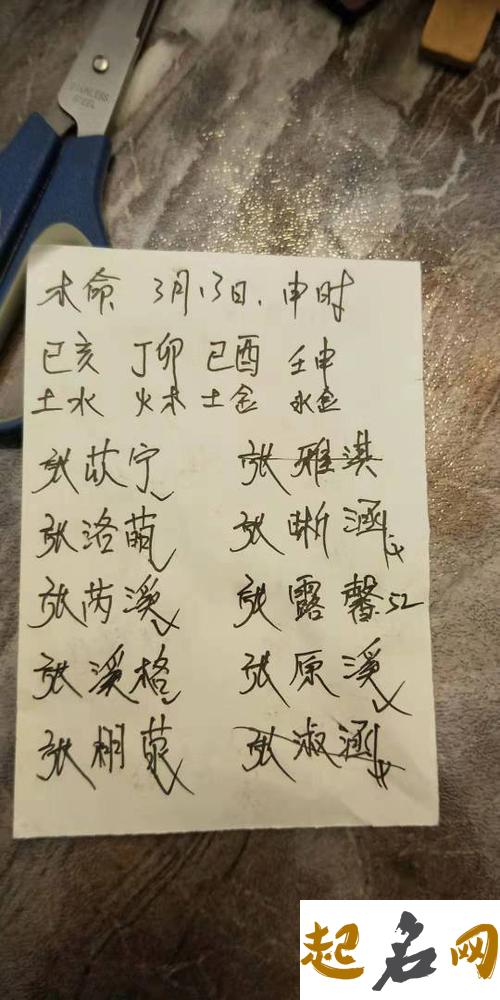 STAINLESS
STEEL
木命 3月13日. 申时
己亥 丁卯 己酉 壬申
土水 火木 土金 水金
张苡宁 张雅淇
张洛萌 张晰涵
张芮溪 张露馨 52
张溪格 张原溪
张栩萊 张淑涵
起名网